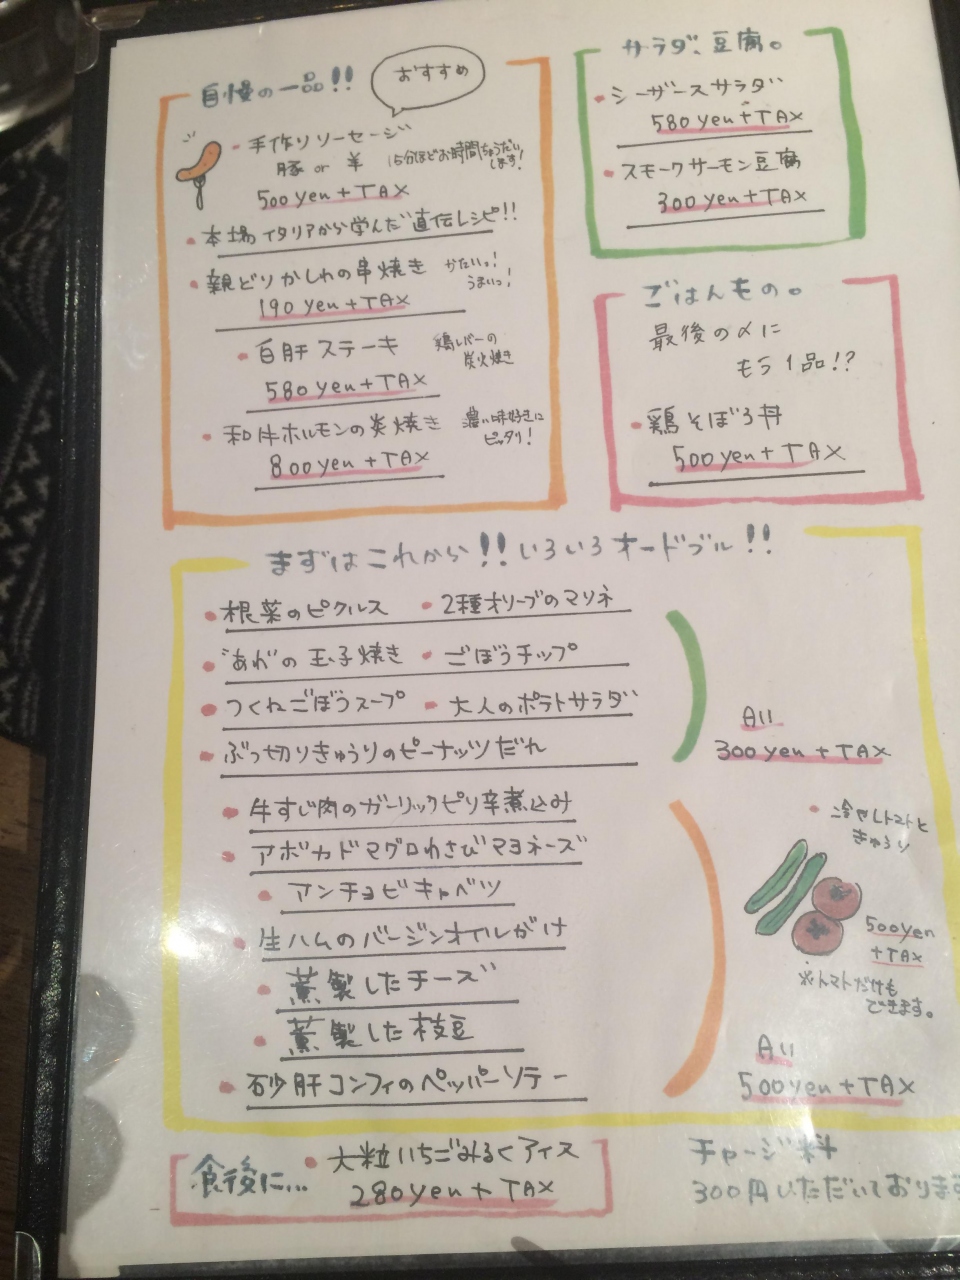 自慢の一品!!
おすすめ
手作りソーセージ
豚 or 羊
15分ほどお時間ちょうだいします!
500yen+TAX
本場イタリアから学んだ直伝レシピ!!
親どりかしわの串焼き
かたいっ!
うまいっ!
190yen+TAX
白肝ステーキ
鶏レバーの
炭火焼き
580yen+TAX
和牛ホルモンの炭焼き
濃い味好きに
ピッタリ!
800yen+TAX
サラダ、豆腐。
シーザースサラダ
580yen+TAX
スモークサーモン豆腐
300yen+TAX
ごはんもの。
最後の〆に
もう1品!?
鶏そぼろ丼
500yen+TAX
まずはこれから!!いろいろオードブル!!
根菜のピクルス
2種オリーブのマリネ
"あれ"の玉子焼き
ごぼうチップ
つくねごぼうスープ
大人のポテトサラダ
ぶつ切りきゅうりのピーナッツだれ
All
300yen+TAX
牛すじ肉のガーリックピリ辛煮込み
アボカドマグロわさびマヨネーズ
アンチョビキャベツ
生ハムのバージンオイルがけ
薫製したチーズ
薫製した枝豆
砂肝コンフィのペッパーソテー
冷やしトマトと
きゅうり
500yen
+TAX
※トマトだけも
できます。
All
500yen+TAX
食後に...
大粒いちごみるくアイス
280yen+TAX
チャージ料
300円いただいております